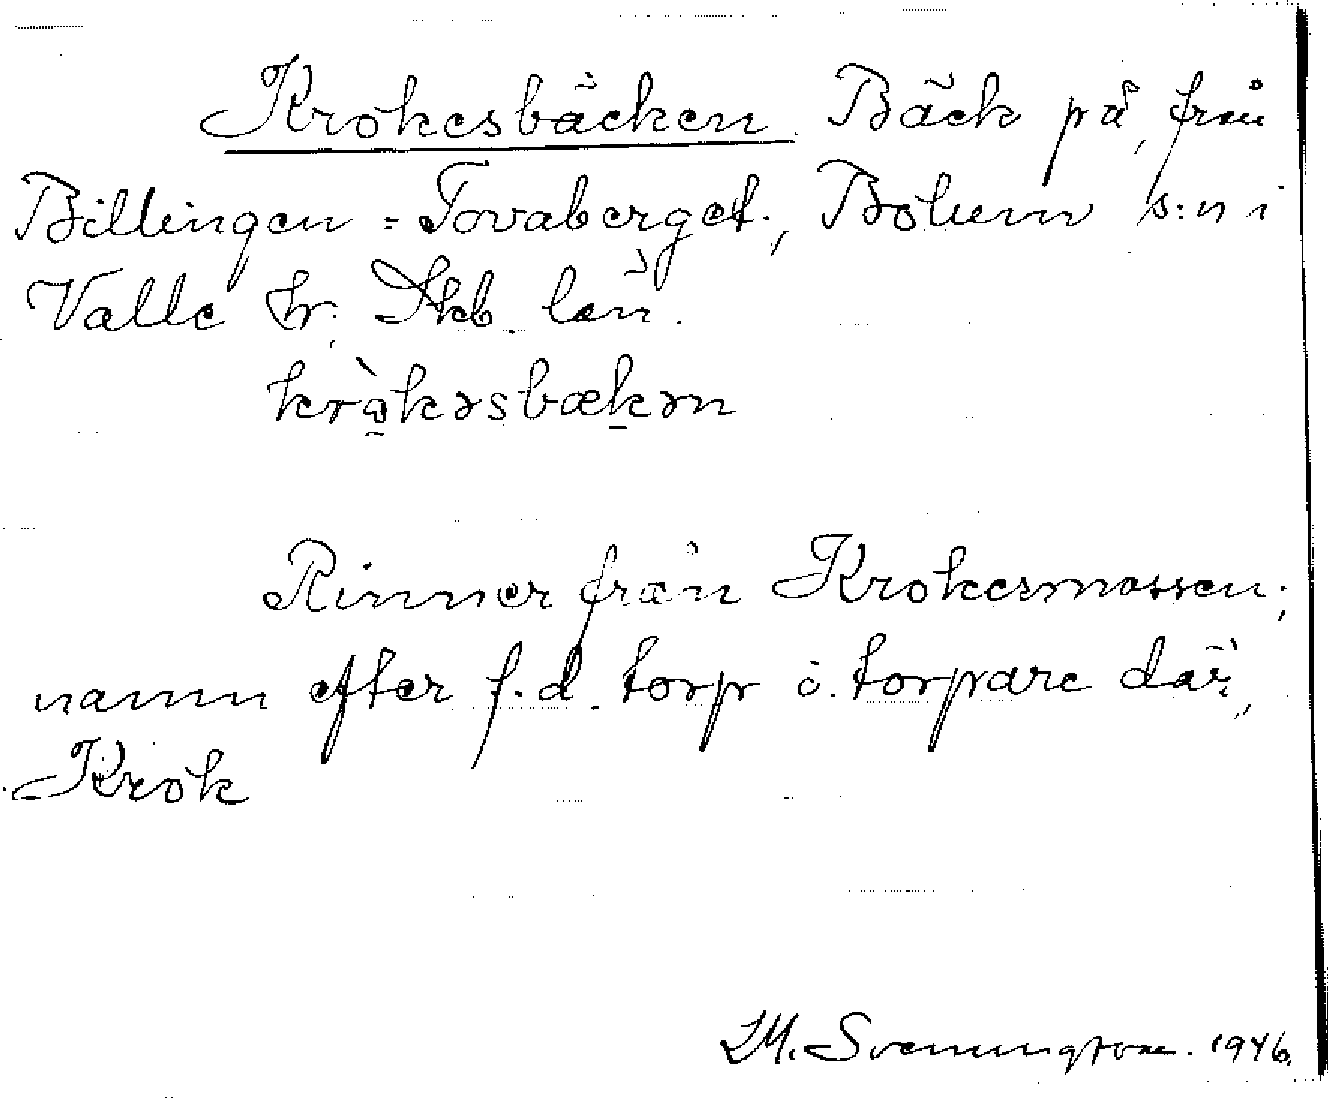 Krokesbäcken. Bäck på, från
Billingen = Tovaberget, Bolum s:n i
Valle hr. Skb. län.
kròkəsbækən
Rinner från Krokesmossen;
namn efter f.d. torp o. torpare där,
Krok
M. Svenungsson. 1946.